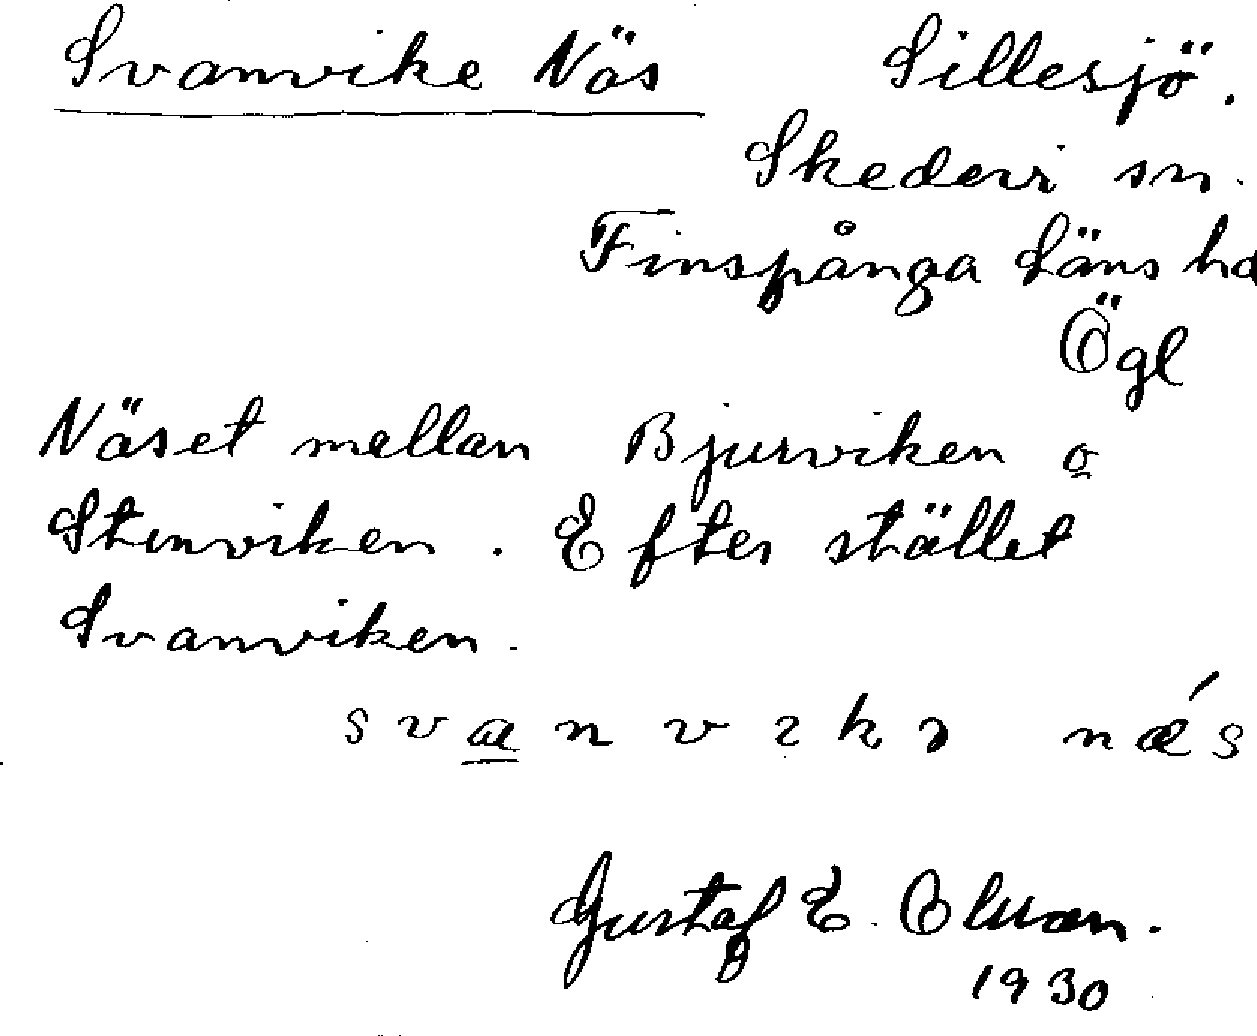 Svanvike Näs Sillesjö.
Skedevi sn.
Finspånga Läns hd
Ögl
Näset mellan Bjurviken o
Stenviken. Efter stället
Svanviken.
svanvɩkə næ´s
Gustaf E.
1930